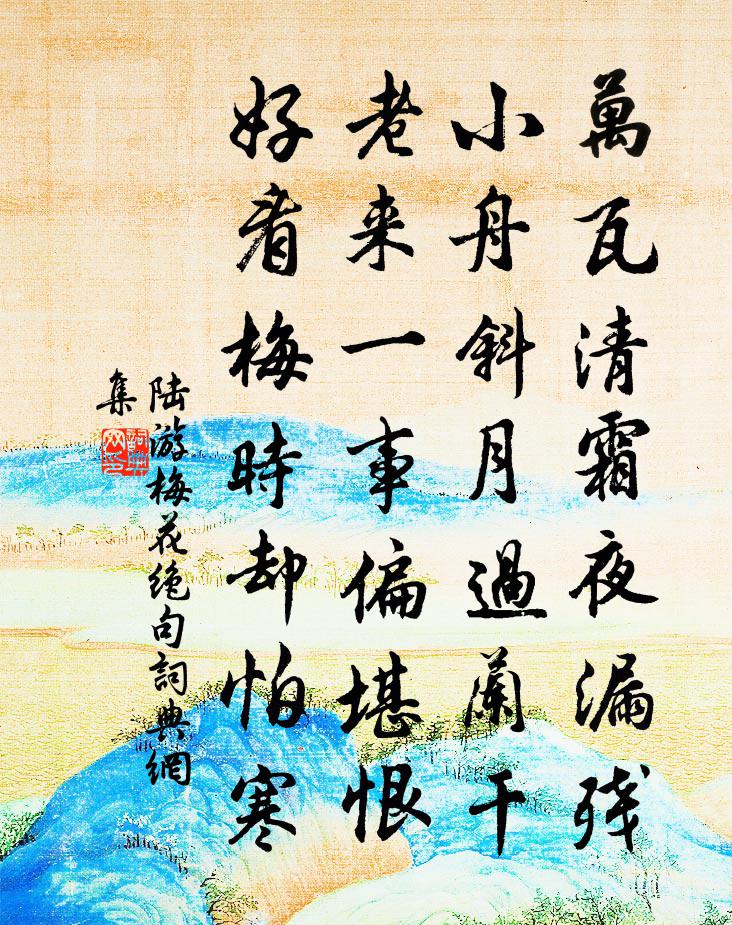 萬瓦清霜夜漏残
小舟斜月過蘭干
老来一事偏堪恨
好看梅時却怕寒
陆游梅花绝句詞典網
集